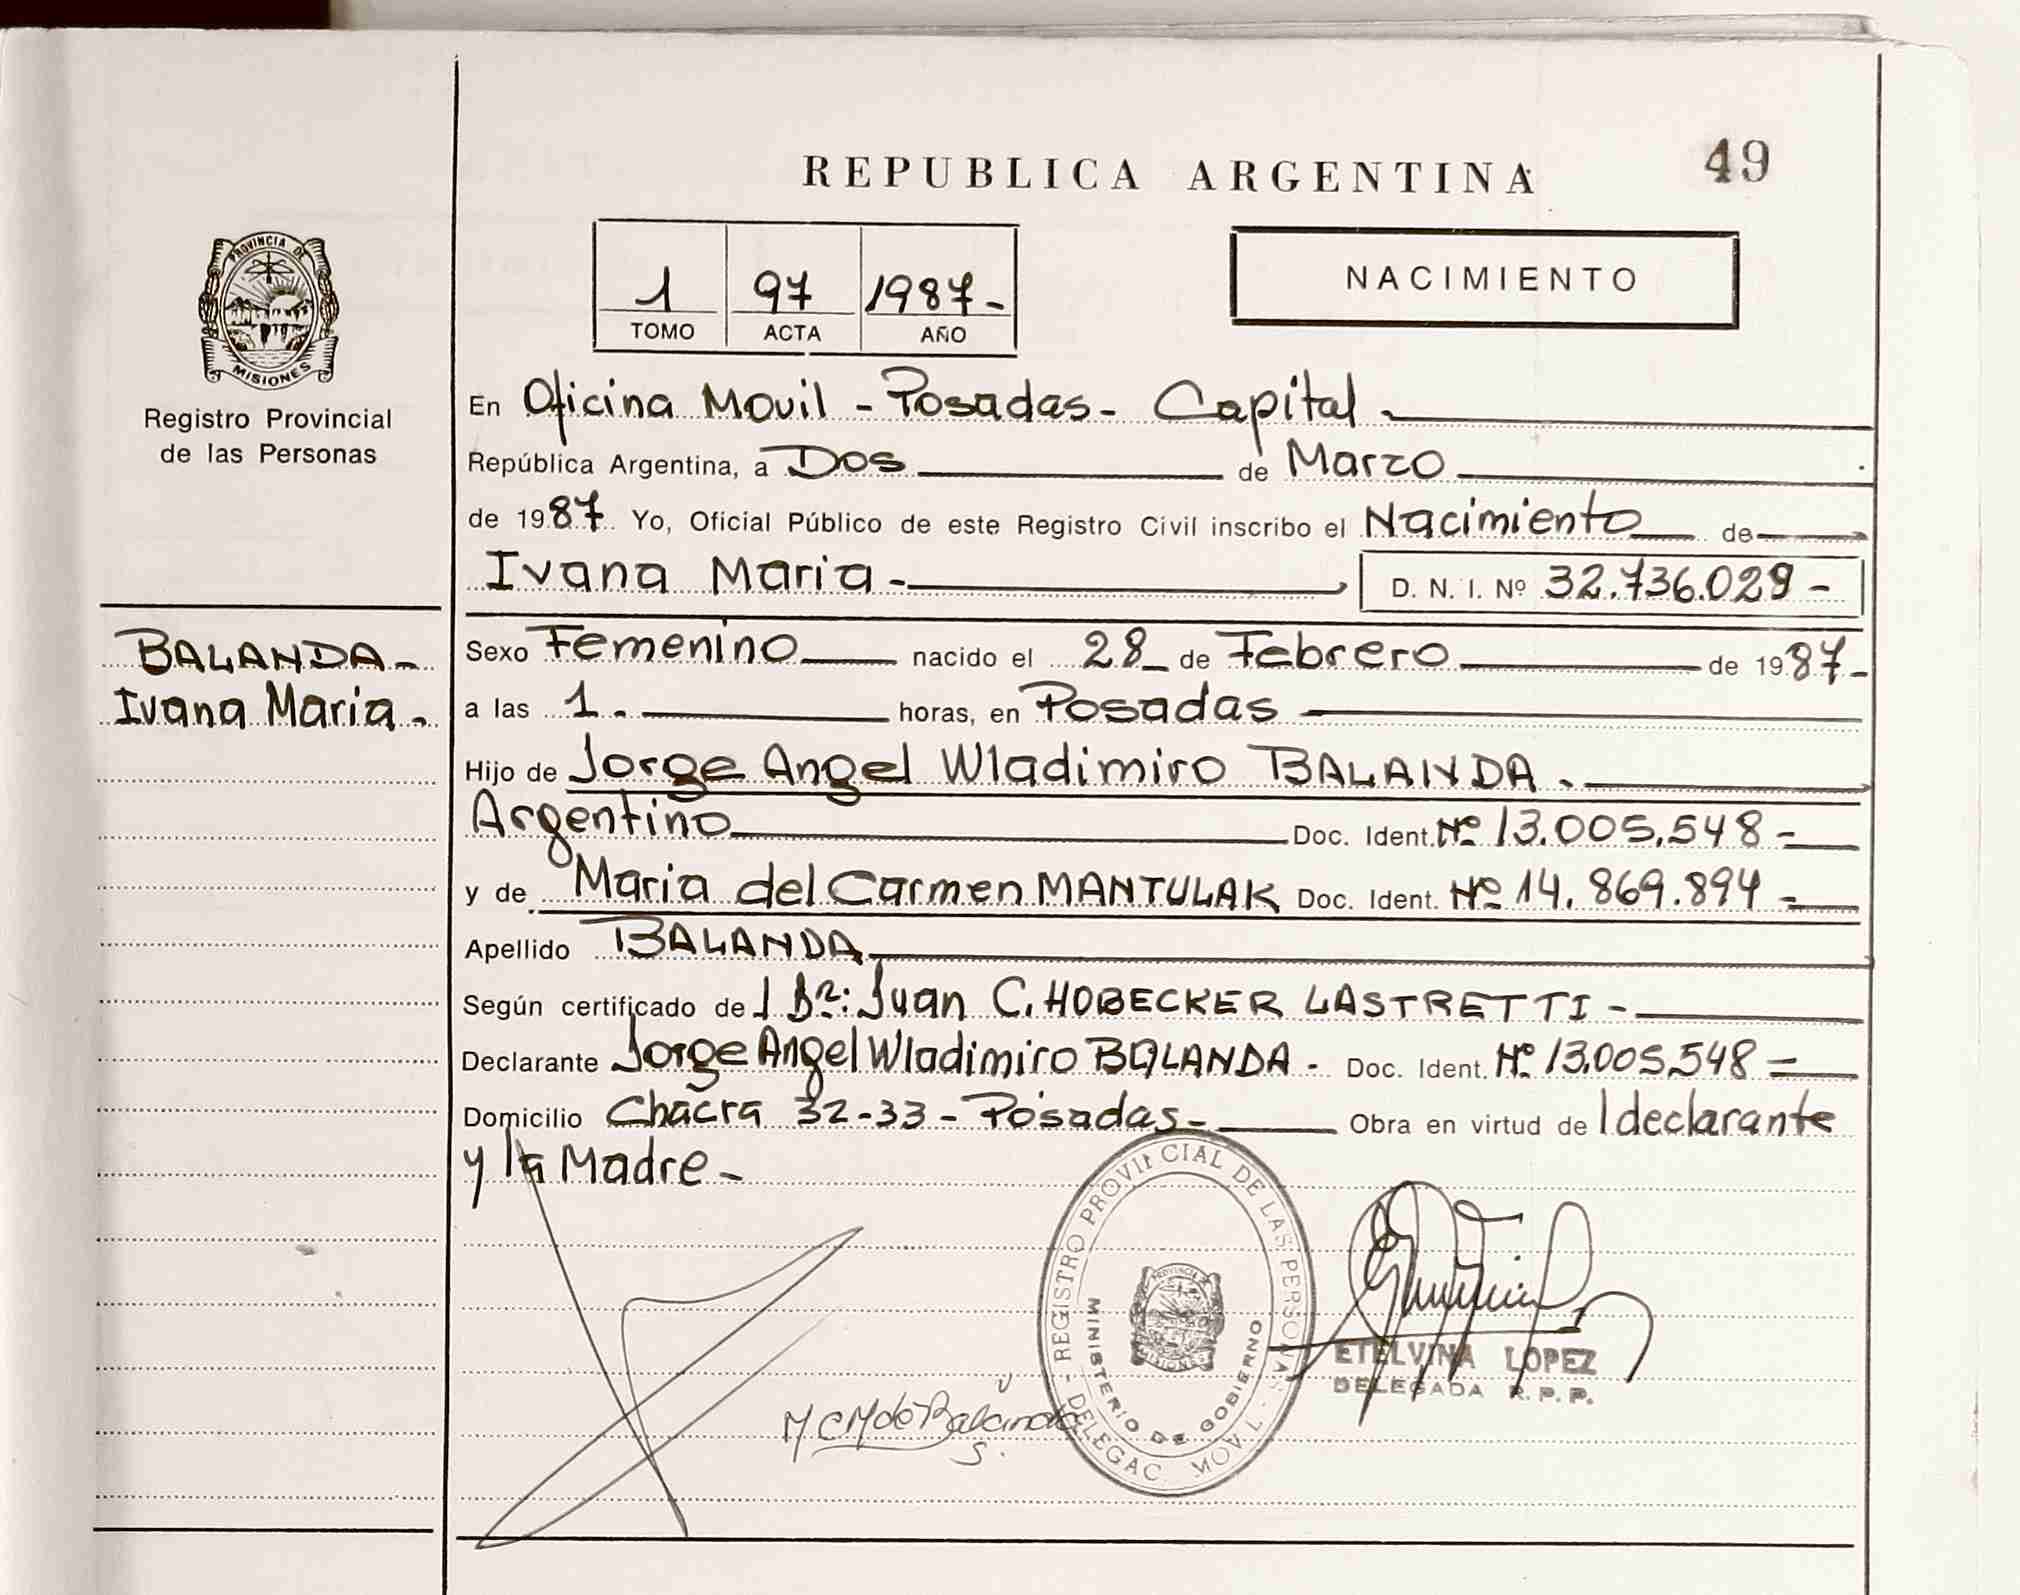 REPUBLICA ARGENTINA
49
NACIMIENTO
1 97 1987-
TOMO ACTA AÑO
PROVINCIA DE
MISIONES
Registro Provincial
de las Personas
En Oficina Movil - Posadas - Capital -
República Argentina, a Dos de Marzo
de 1987 Yo, Oficial Público de este Registro Civil inscribo el Nacimiento de
Ivana Maria - D. N. I. Nº 32.736.029 -
BALANDA -
Ivana Maria -
Sexo Femenino nacido el 28 de Febrero de 1987 -
a las 1 - horas, en Posadas
Hijo de Jorge Angel Wladimiro BALANDA .
Argentino Doc. Ident. Nº 13.005.548 -
y de Maria del Carmen MANTULAK Doc. Ident. Nº 14.869.894 -
Apellido BALANDA
Según certificado de l Dr: Juan C. HOBECKER LASTRETTI -
Declarante Jorge Angel Wladimiro BALANDA - Doc. Ident. Nº 13.005.548 =
Domicilio Chacra 32-33 - Posadas - Obra en virtud de l declarante
y la Madre -
REGISTRO PROVINCIAL DE LAS PERSONAS - DELEGAC. MOVIL -
MINISTERIO DE GOBIERNO
PROVINCIA DE
MISIONES
M C M de Balanda
ETELVINA LOPEZ
DELEGADA R. P. P.